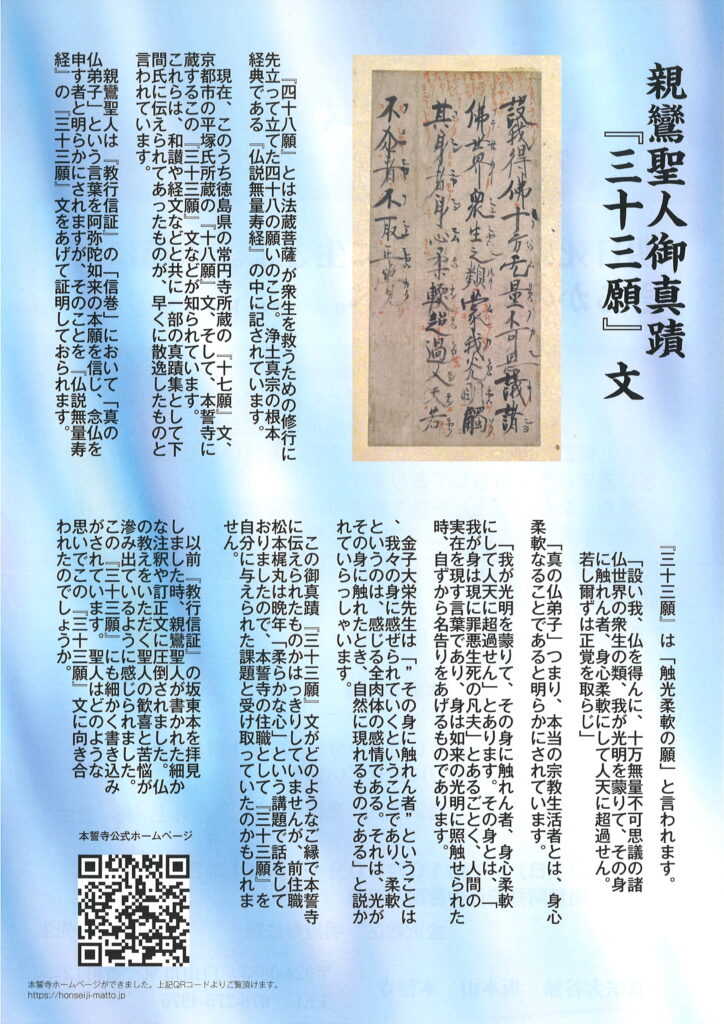 親鸞聖人御真蹟
『三十三願』文
設我得佛十方无量不可思議諸
佛世界衆生之類蒙我光明觸
其身者身心柔軟超過人天若
不尒者不取正覺
『四十八願』とは法蔵菩薩が衆生を救うための修行に
先立って立てた四十八の願いのこと。浄土真宗の根本
経典である『仏説無量寿経』の中に記されています。
現在、このうち徳島県の常円寺所蔵の『十七願』文、
京都市の平塚氏所蔵の『十八願』文、そして、本誓寺に
蔵するこの『三十三願』文などが知られています。
これらは、和讃や経文などと共に一部の真蹟集として下
間氏に伝えられてあったものが、早くに散逸したものと
言われています。
親鸞聖人は『教行信証』の「信巻」において「真の
仏弟子」という言葉を阿弥陀如来の本願を信じ、念仏を
申す者と明らかにされますが、そのことを『仏説無量寿
経』の『三十三願』文をあげて証明しておられます。
『三十三願』は「触光柔軟の願」と言われます。
「設い我、仏を得んに、十万無量不可思議の諸
仏世界の衆生の類、我が光明を蒙りて、その身
に触れん者、身心柔軟にして人天に超過せん。
若し爾ずは正覚を取らじ」
「真の仏弟子」つまり、本当の宗教生活者とは、身心
柔軟なることであると明らかにされています。
「我が光明を蒙りて、その身に触れん者、身心柔軟
にして人天に超過せん」とあります。その身とは、「
我が身は現に罪悪生死の凡夫」とあるごとく、人間の
実在を現す言葉であり、身は如来の光明に照触せられた
時、自ずから名告りをあげるものであります。
金子大栄先生は「”その身に触れん者”ということは
、我々の身に感ぜられていくということであり、柔軟
というのは、感じる全肉体の感情である。それは、光が
その身に触れたとき、自然に現れるものである」と説か
れていらっしゃいます。
この御真蹟『三十三願』文がどのようなご縁で本誓寺
に伝えられたものかはっきりしていませんが、前住職
松本梶丸は晩年「柔らかな心」という講題で話をして
おりましたので、本誓寺の住職として『三十三願』を
自分に与えられた課題と受け取っていたのかもしれま
せん。
以前『教行信証』の坂東本を拝見
しました時、親鸞聖人が書かれた細か
な注釈や訂正文に圧倒されました。仏
の教えをいただく聖人の歓喜と苦悩が
滲み出ているように感じられました。
この『三十三願』にも細かく書き込み
がされています。聖人はどのような
思いでこの『三十三願』文に向き合
われたのでしょうか。
本誓寺公式ホームページ
本誓寺ホームページができました。上記QRコードよりご覧頂けます。
https://honseiji-matto.jp